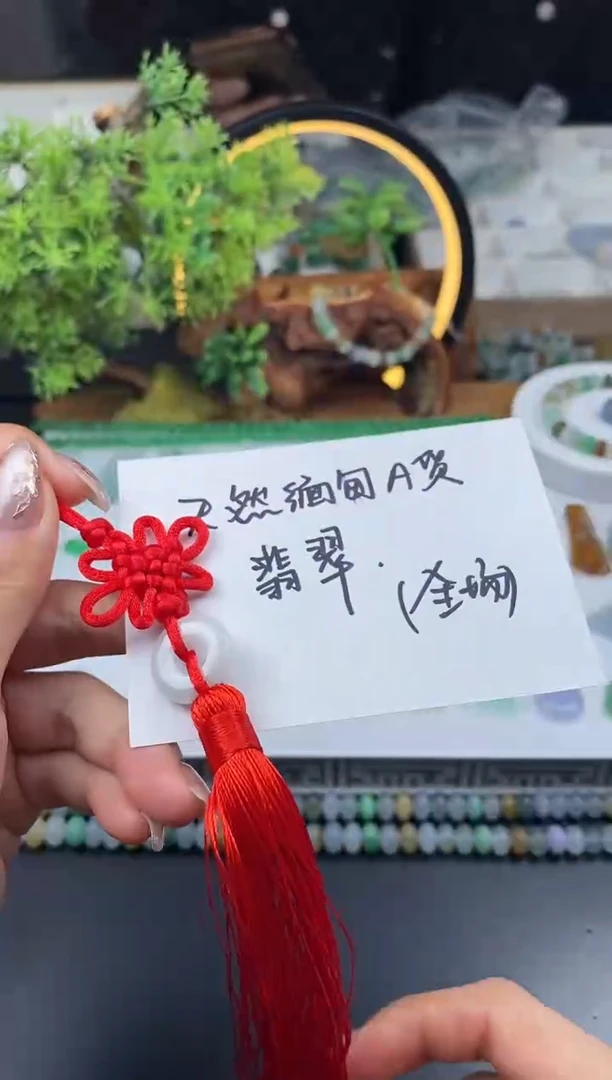 天然缅甸A货
翡翠.
(全场)